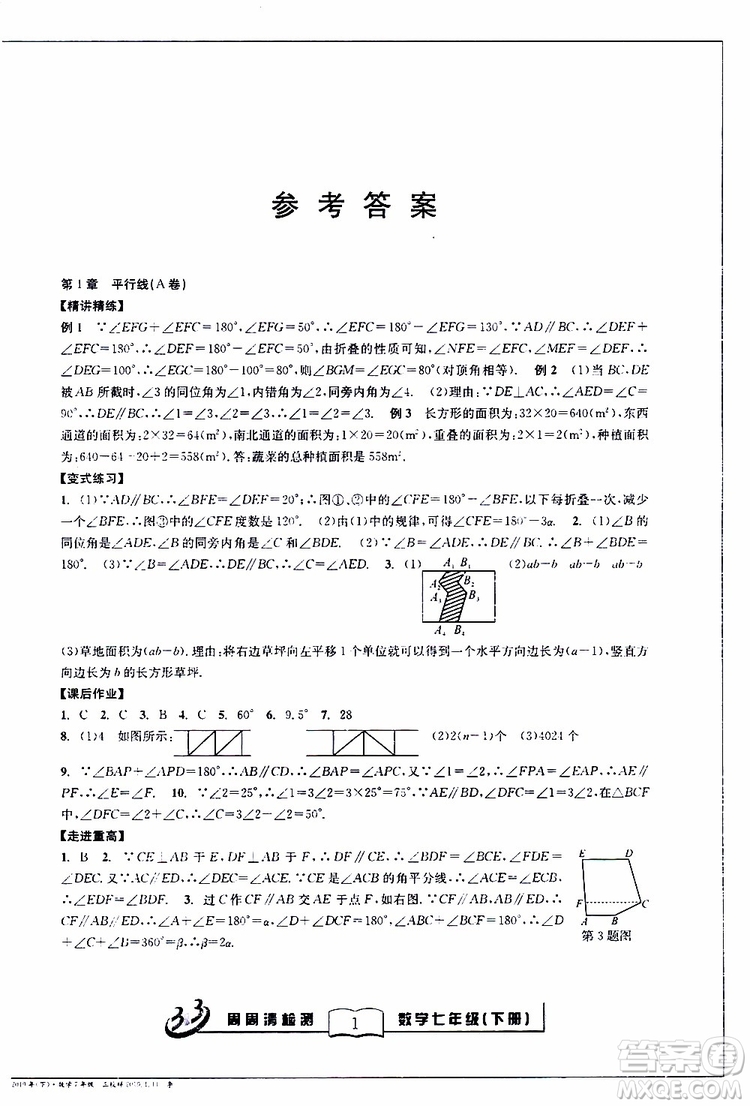 参考答案
第1章 平行线(A卷)
【精讲精练】
例1 ∵∠EFG+∠EFC=180°,∠EFG=50°,∴∠EFC=180°-∠EFG=130°,∵AD∥BC,∴∠DEF+
∠EFC=180°,∴∠DEF=180°-130°=50°,由折叠的性质可知,∠NFE=∠EFC,∠MEF=∠DEF,∴
∠DEG=100°,∴∠EGC=180°-100°=80°,∠BGM=∠EGC=80°(对顶角相等). 例2 (1)当BC,DE
被AB所截时,∠3的同位角为∠1,内错角为∠2,同旁内角为∠4. (2)理由:∵DE⊥AC,∴∠AED=∠C=
90°,∴DE∥BC,∴∠1=∠3,∵∠1=∠2,∴∠2=∠3. 例3 长方形的面积为:32×20=640(m²),东西
通道的面积为:2×32=64(m²),南北通道的面积为:1×20=20(m²),重叠的面积为:2×1=2(m²),种植面积
为:640-64-20+2=558(m²).答:蔬菜的总种植面积为558m².
【变式练习】
1. (1)∵AD∥BC,∴∠BFE=∠DEF=20°;∴图①、②中的∠CFE=180°-∠BFE,以下每折叠一次,减少
一个∠BFE,∴图③中的∠CFE度数是120°. (2)由(1)中的规律,可得∠CFE=180°-3α. 2. (1)∠B的
同位角是∠ADE,∠B的同旁内角是∠C和∠BDE. (2)∵∠B=∠ADE,∴DE∥BC.∴∠B+∠BDE=
180°. (3)∵DE∥BC,∴∠C=∠AED. 3. (1) (2)ab-b ab-b ab-b
A₁ B₁
A₂ B₂
A₃ B₃
A₄ B₄
(3)草地面积为(ab-b).理由:将右边草坪向左平移1个单位就可以得到一个水平方向边长为(a-1),竖直方
向边长为b的长方形草坪.
【课后作业】
1. C 2. C 3. B 4. C 5. 60° 6. 9.5° 7. 28
8. (1)4 如图所示: (2)2(n-1)个 (3)4024个
9. ∵∠BAP+∠APD=180°,∴AB∥CD,∴∠BAP=∠APC,又∵∠1=∠2,∴∠FPA=∠EAP,∴AE∥
PF,∴∠E=∠F. 10. ∵∠2=25°,∴∠1=∠2+50°=25°+50°=75°,∵∠BFC=∠1,∴在△BCF
中,∠C=180°-∠B-∠BFC=180°-50°-75°=55°.
【走进重高】
1. B 2. ∵CE⊥AB于E,DF⊥AB于F,∴DF∥CE,∴∠BDF=∠BCE,∠FDE=
∠DEC.又∵AC∥ED,∴∠DEC=∠ACE.∵CE是∠ACB的角平分线,∴∠BCE=∠ACE,∴
∠EDF=∠BDF. 3. 过C作CF∥AB交AE于点F,如右图.∵CF∥AB,AB∥ED,∴
CF∥ED,∵AB∥ED,∴∠A+∠E=180°=α,∠D+∠DCF=180°,∠ABC+∠BCF=180°,∴∠D
+∠C+∠B=360°=β,∴β=2α.
E D
F C
A B
第3题图
33 周周清检测 1 数学七年级(下册)
2019年(下)·数学7年级 三校样 2019.1.11 李
答案圈
MXQE.COM